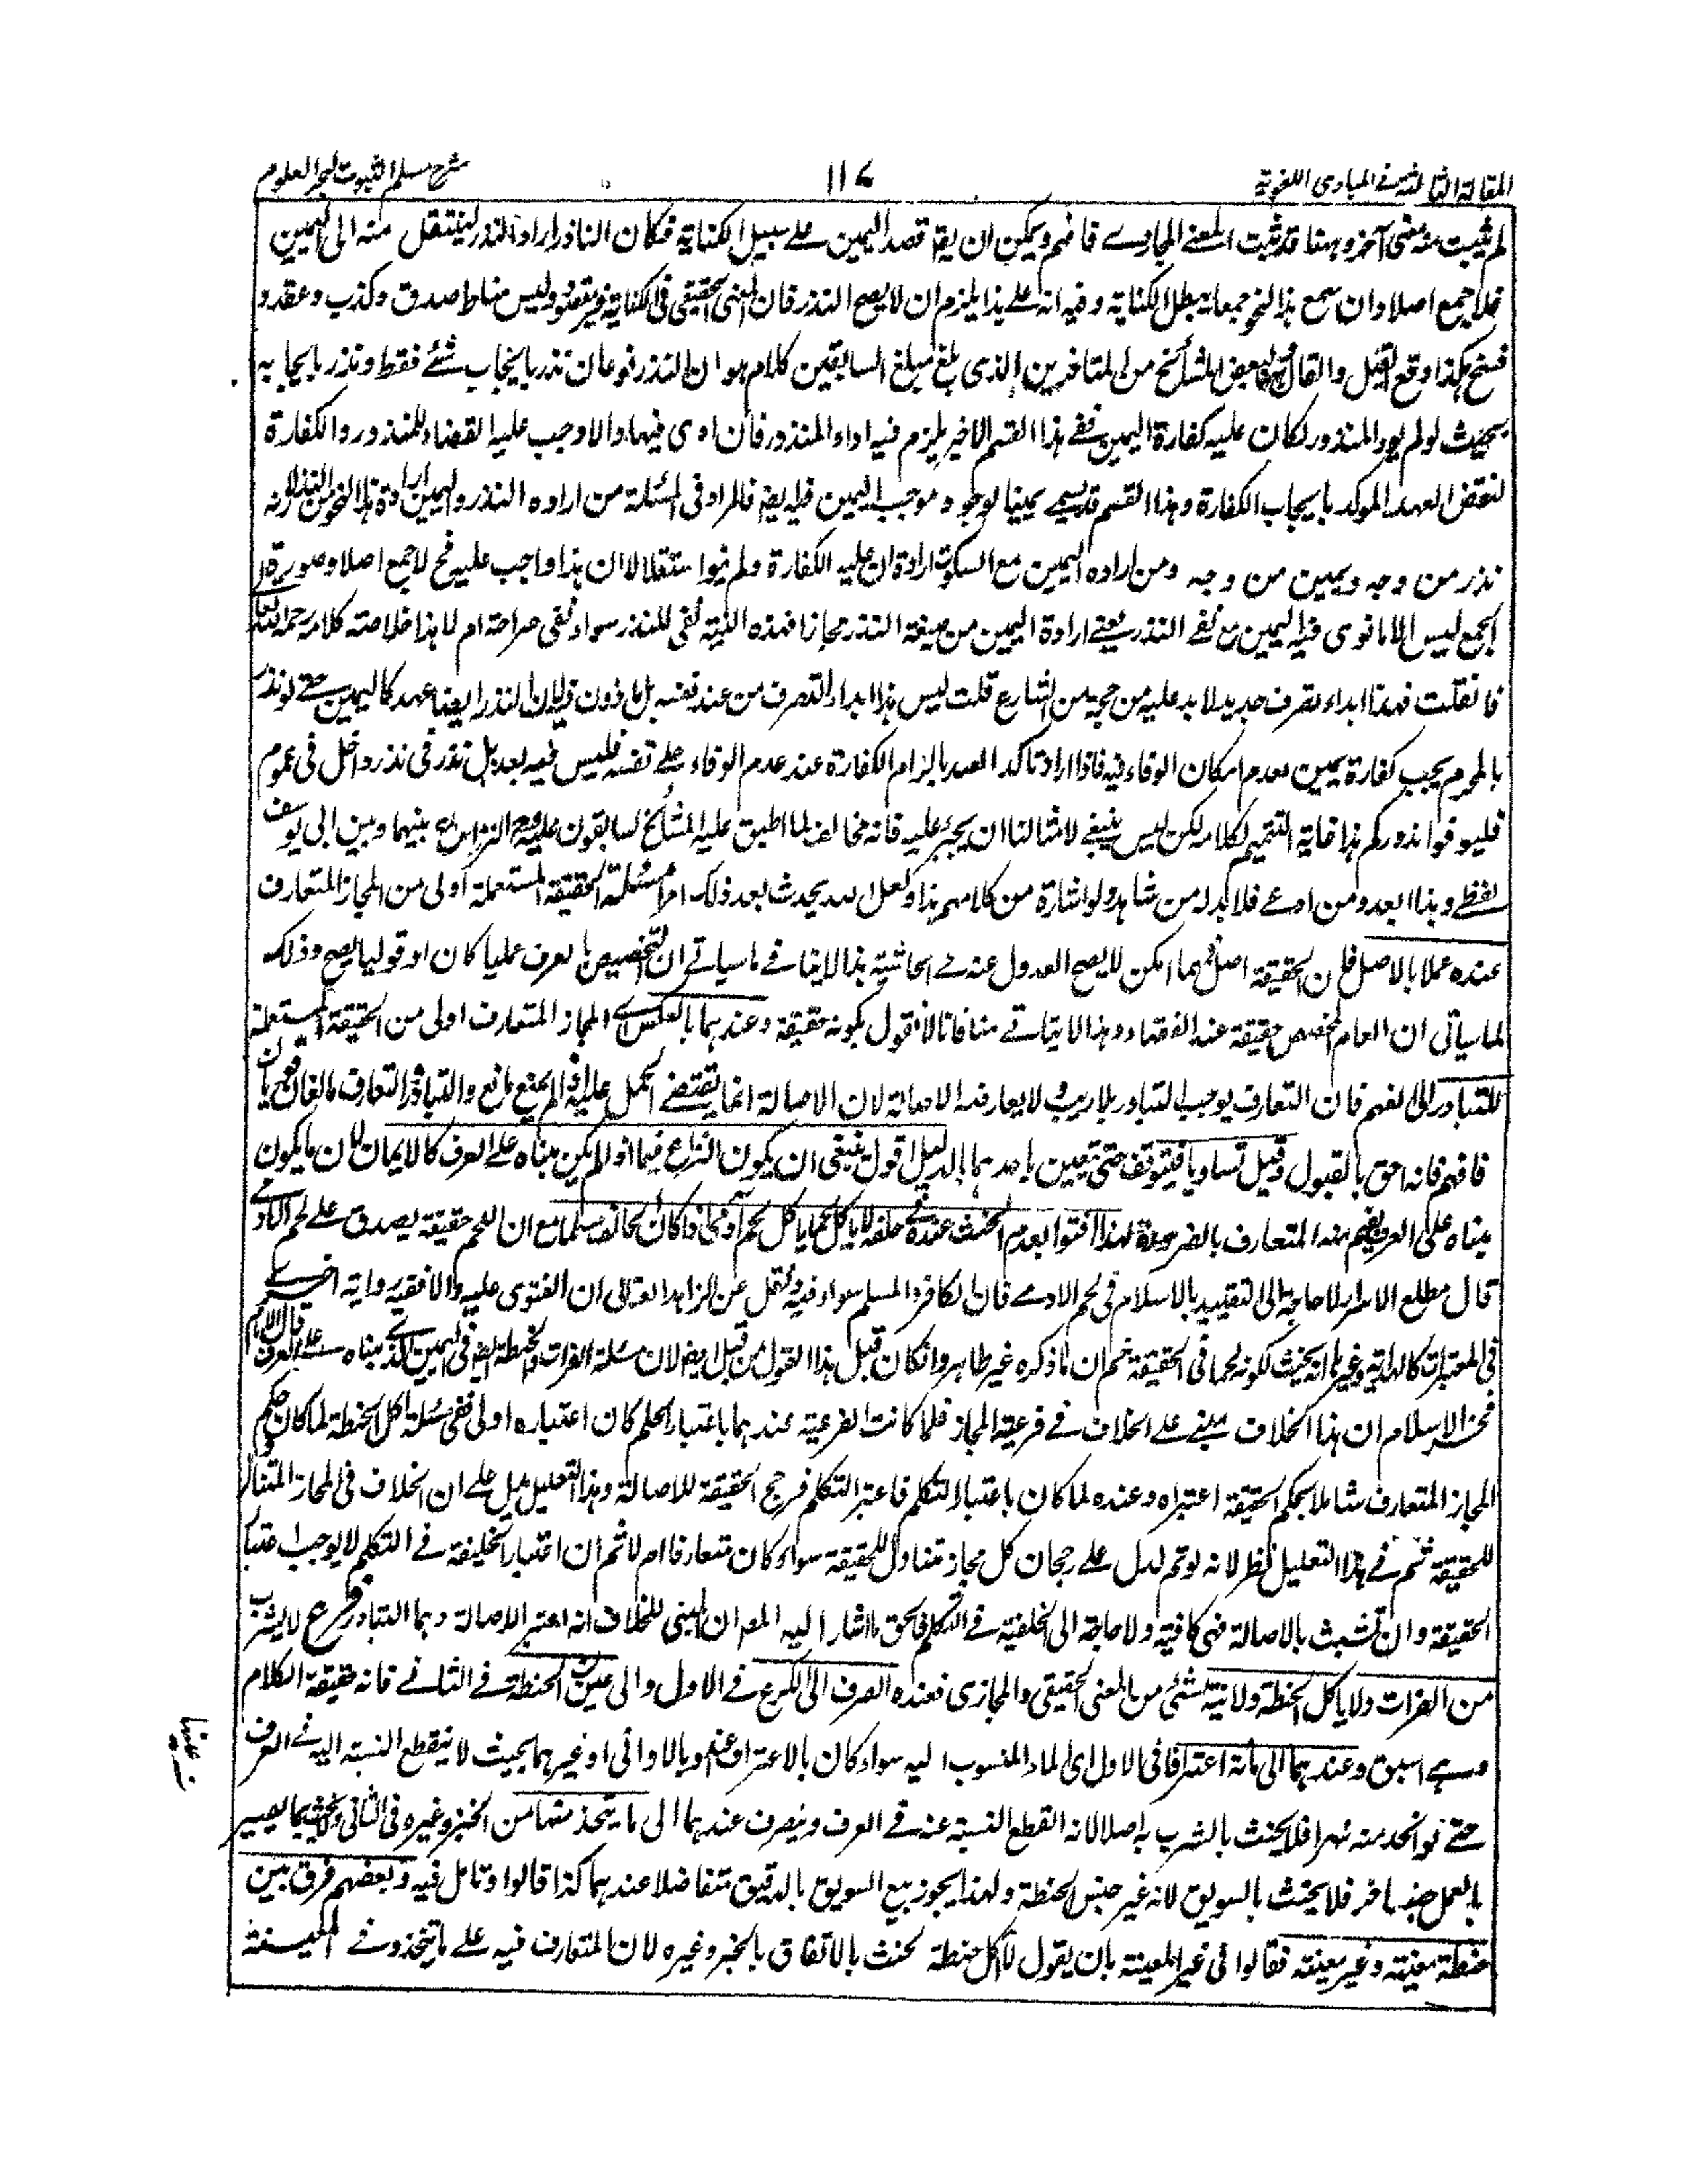 المقالة الثالثة في المبادي اللغوية ١١٧ شرح مسلم الثبوت لبحر العلوم
لم يثبت منه معنى آخر وههنا قد ثبت المعنى المجازے فافهم ويمكن ان يقا قصد اليمين علے سبيل الكناية فكان الناذر اراد النذر لينتقل منه الى اليمين
فلا جمع اصلا وان سمع هذا النحو جمعا تبطل الكناية وفيه انه علے هذا يلزم ان لا يصح النذر فان المعنى الحقيقي في الكناية غير مقصود وليس مناط صدق وكذب وعقد و
فسخ هكذا وقع القيل والقال ولبعض المشائخ من المتاخرين الذى بلغ مبلغ السابقين كلام هو ان النذر نوعان نذر بايجاب شئ فقط ونذر بايجابه
بحيث لو لم يود المنذور لكان عليه كفارة اليمين ففے هذا القسم الاخير يلزم فيه اداء المنذور فان ادى فبها والا وجب عليه القضاء للمنذور والكفارة
لنقض العهد الموكد بايجاب الكفارة وهذا القسم قد يسمے يمينا لوجود موجب اليمين فيه ايضا فالمراد فى المسئلة من اراده النذر واليمين ارادة هذا النحو من النذر لانه
نذر من وجه ويمين من وجه ومن اراده اليمين مع السكوت ارادة ان عليه الكفارة ولم ينوا استقلالا ان هذا واجب عليه فح لا جمع اصلا وصورة
الجمع ليس الا ما نوى فيه اليمين مع نفے النذر يعنے ارادة اليمين من صيغة النذر مجازا فهذه النية نفى للنذر سواء نفى صراحة ام لا هذا خلاصة كلامه رحمه الله تعالى
فان قلت فهذا ابداء تصرف جديد لا بد عليه من حجة من الشارع قلت ليس هذا ابداء التصرف من عند نفسه بل ماذون فيه لان النذر ايضا عهد كاليمين حتے لو نذر
بالمحرم يجب كفارة يمين لعدم امكان الوفاء فيه فاذا اراد تاكد العهد بالزام الكفارة عند عدم الوفاء علے نفسه فليس فيه بعد بل نذر فى نذر واخل فى عموم
فليوفوا نذوركم هذا غاية التتميم لكلامه لكن ليس ينبغے لامثالنا ان يجتر عليه فانه مخالف لما اطبق عليه المشائخ السابقون عليه وح النزاع بينهما وبين ابى يوسف
لفظے وهذا ابعد ومن ادعے فلا بد له من شاهد ولو اشارة من كلامهم هذا ولعل الله يحدث بعد ذلك امرا مسئلة الحقيقة المستعملة اولى من المجاز المتعارف
عنده عملا بالاصل فان الحقيقة اصل فمهما امكن لا يصح العدول عنه فے الحاشية هذا لاينافے ما سياتے ان التخصيص بالعرف عمليا كان او قوليا يصح وذلك
لما سياتى ان العام المخصص حقيقة عند الفقهاء وهذا لا يتاتے منافاتا لا نقول بكونه حقيقة وعندهما بالعكس اے المجاز المتعارف اولى من الحقيقة المستعملة
للتبادر الى الفهم فان التعارف يوجب التبادر بلا ريب ولا يعارضه الاصالة لان الاصالة انما يقتضے الحمل عليه اذا لم يمنع مانع والتبادر والتعارف مانعان
فافهم فانه احق بالقبول وقيل تساويا فيتوقف حتى تعيين باحدهما بالدليل اقول ينبغى ان يكون النزاع فيما اذا لم يكن مبناه علے العرف كالايمان لان ما يكون
مبناه على العرف يفهم منه المتعارف بالضرورة لهذا افتوا بعدم الحنث عنده فے حلفه لا ياكل لحما ياكل لحم آدمى اذا كان الحالف مسلما مع ان اللحم حقيقة يصدق علے لحم الآدمے
قال مطلع الاسرار لا حاجة الى التقييد بالاسلام فى لحم الادمے فان الكافر والمسلم سواء فيه ونقل عن الزاهد العتابى ان الفتوى عليه والا ففيه رواية اخرے
فى المعتبرات كالهداية وغيرها انه يحنث لكونه لحما فى الحقيقة ثم ان ما ذكره غير ظاهر وانكان قبل هذا القول من قبل ايضا لان مسئلة الفرات والحنطة ايضا فى اليمين الذے مبناه علے العرف قال الامام
فخر الاسلام ان هذا الخلاف مبنے علے الخلاف فے فرعية المجاز فلما كانت الفرعية عندهما باعتبار الحكم كان اعتباره اولى ففى مسئلة اكل الحنطة لما كان حكم
المجاز المتعارف شاملا بحكم الحقيقة اعتبراه وعنده لما كان باعتبار التكلم فاعتبر التكلم فرجح الحقيقة للاصالة وهذا التعليل يدل علے ان الخلاف فى المجاز المتناول
للحقيقة ثم فے هذا التعليل نظر لانه لو تم لدل علے رجحان كل مجاز متناول للحقيقة سواء كان متعارفا ام لا ثم ان اعتبار الخليفة فے التكلم لا يوجب اعتبار
الحقيقة وان تشبث بالاصالة فهى كافية ولا حاجة الى الخلفية فے التكلم فالحق ما اشار اليه المصر ان المبنى للخلاف انه اعتبر الاصالة وهما التبادر وفرع لا يشرب
من الفرات ولا ياكل الحنطة ولا نية لشئى من المعنى الحقيقى والمجازى فعنده انصرف الى الكرع فے الاول والى عين الحنطة فے الثانے فانه حقيقة الكلام
وهے اسبق وعندهما الى ما اعتبر عرفا فى الاول اى الماء المنسوب اليه سواء كان بالاعتراف وبالاوانى او غيرهما بحيث لا ينقطع النسبة اليه فے العرف
حتے لو اتخذ منه نهرا فلا يحنث بالشرب به اصلا لانه انقطع النسبة عنه فے العرف وينصرف عندهما الى ما يتخذ منها من الخبز وغيره فى الثانى ولا يحنث بما يصير
بالعمل جنسا آخر فلا يحنث بالسويق لانه غير جنس الحنطة ولهذا يجوز بيع السويق بالدقيق متفاضلا عندهما كذا قالوا وتامل فيه وبعضهم فرق بين
حنطة معينة وغير معينة فقالوا فى غير المعينة بان يقول لا آكل حنطة يحنث بالاتفاق بالخبز وغيره لان المتعارف فيه علے ما يتخذ وفے المعينة